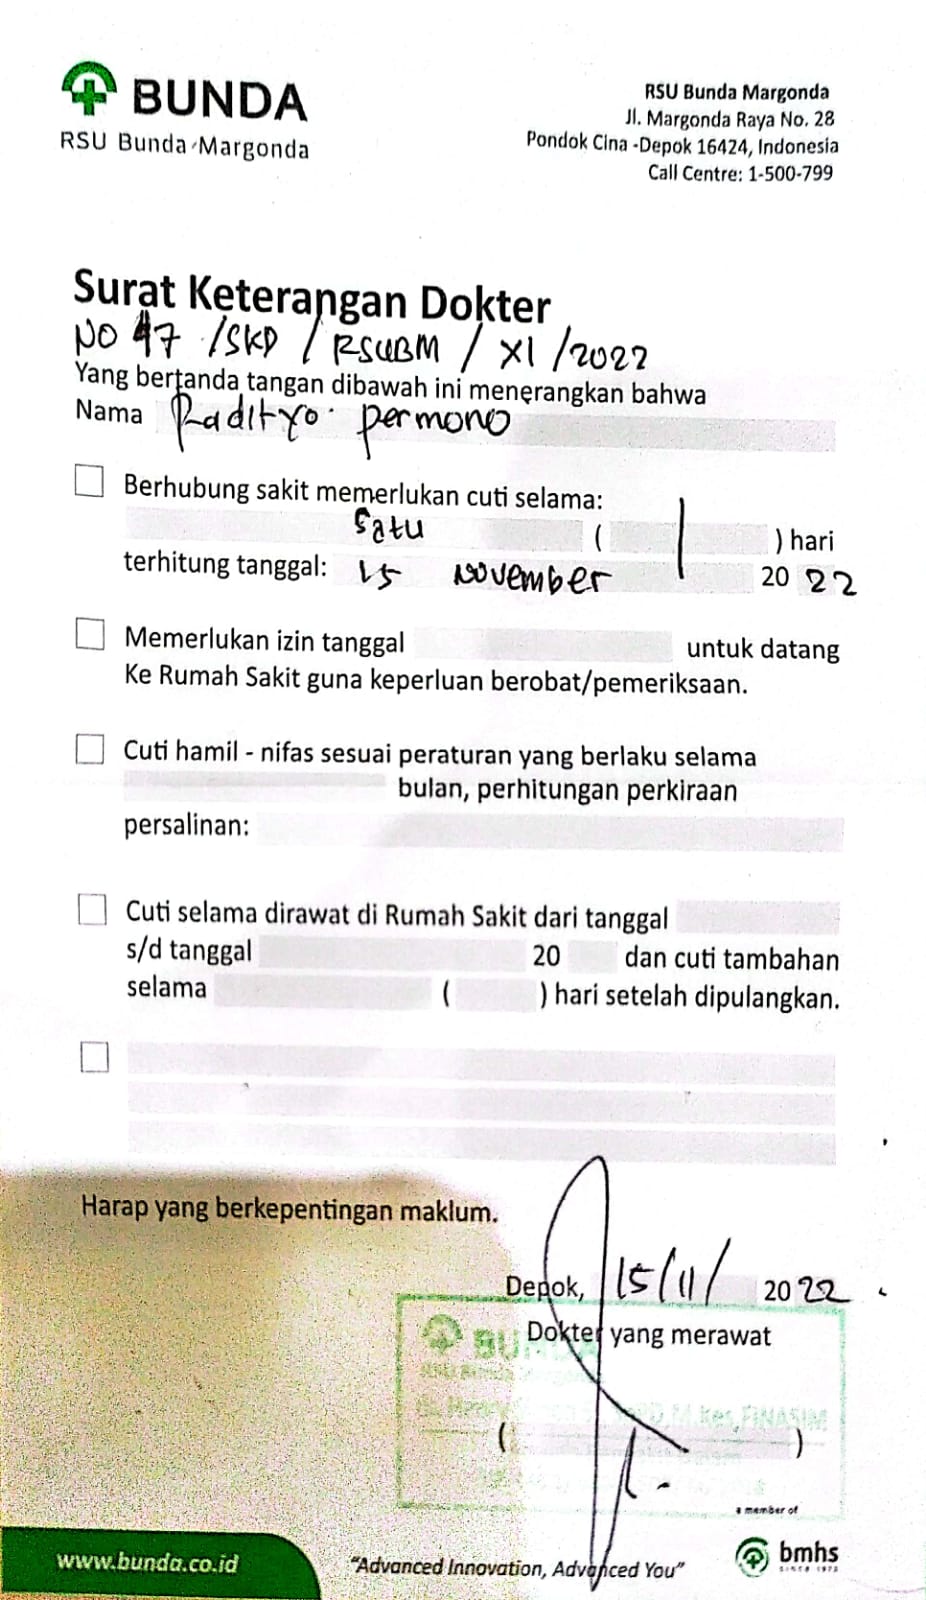 BUNDA
RSU Bunda Margonda
RSU Bunda Margonda
Jl. Margonda Raya No. 28
Pondok Cina -Depok 16424, Indonesia
Call Centre: 1-500-799
Surat Keterangan Dokter
NO 47 /SKD / RSUBM / XI /2022
Yang bertanda tangan dibawah ini menerangkan bahwa
Nama Radityo permono
Berhubung sakit memerlukan cuti selama:
Satu ( 1 ) hari
terhitung tanggal: 15 November 20 22
Memerlukan izin tanggal untuk datang
Ke Rumah Sakit guna keperluan berobat/pemeriksaan.
Cuti hamil - nifas sesuai peraturan yang berlaku selama
bulan, perhitungan perkiraan
persalinan:
Cuti selama dirawat di Rumah Sakit dari tanggal
s/d tanggal 20 dan cuti tambahan
selama ( ) hari setelah dipulangkan.
Harap yang berkepentingan maklum.
Depok, 15/11/ 2022
Dokter yang merawat
BUNDA
M.Kes,FINASIM
( )
a member of
bmhs
SINCE 1973
www.bunda.co.id
"Advanced Innovation, Advanced You"